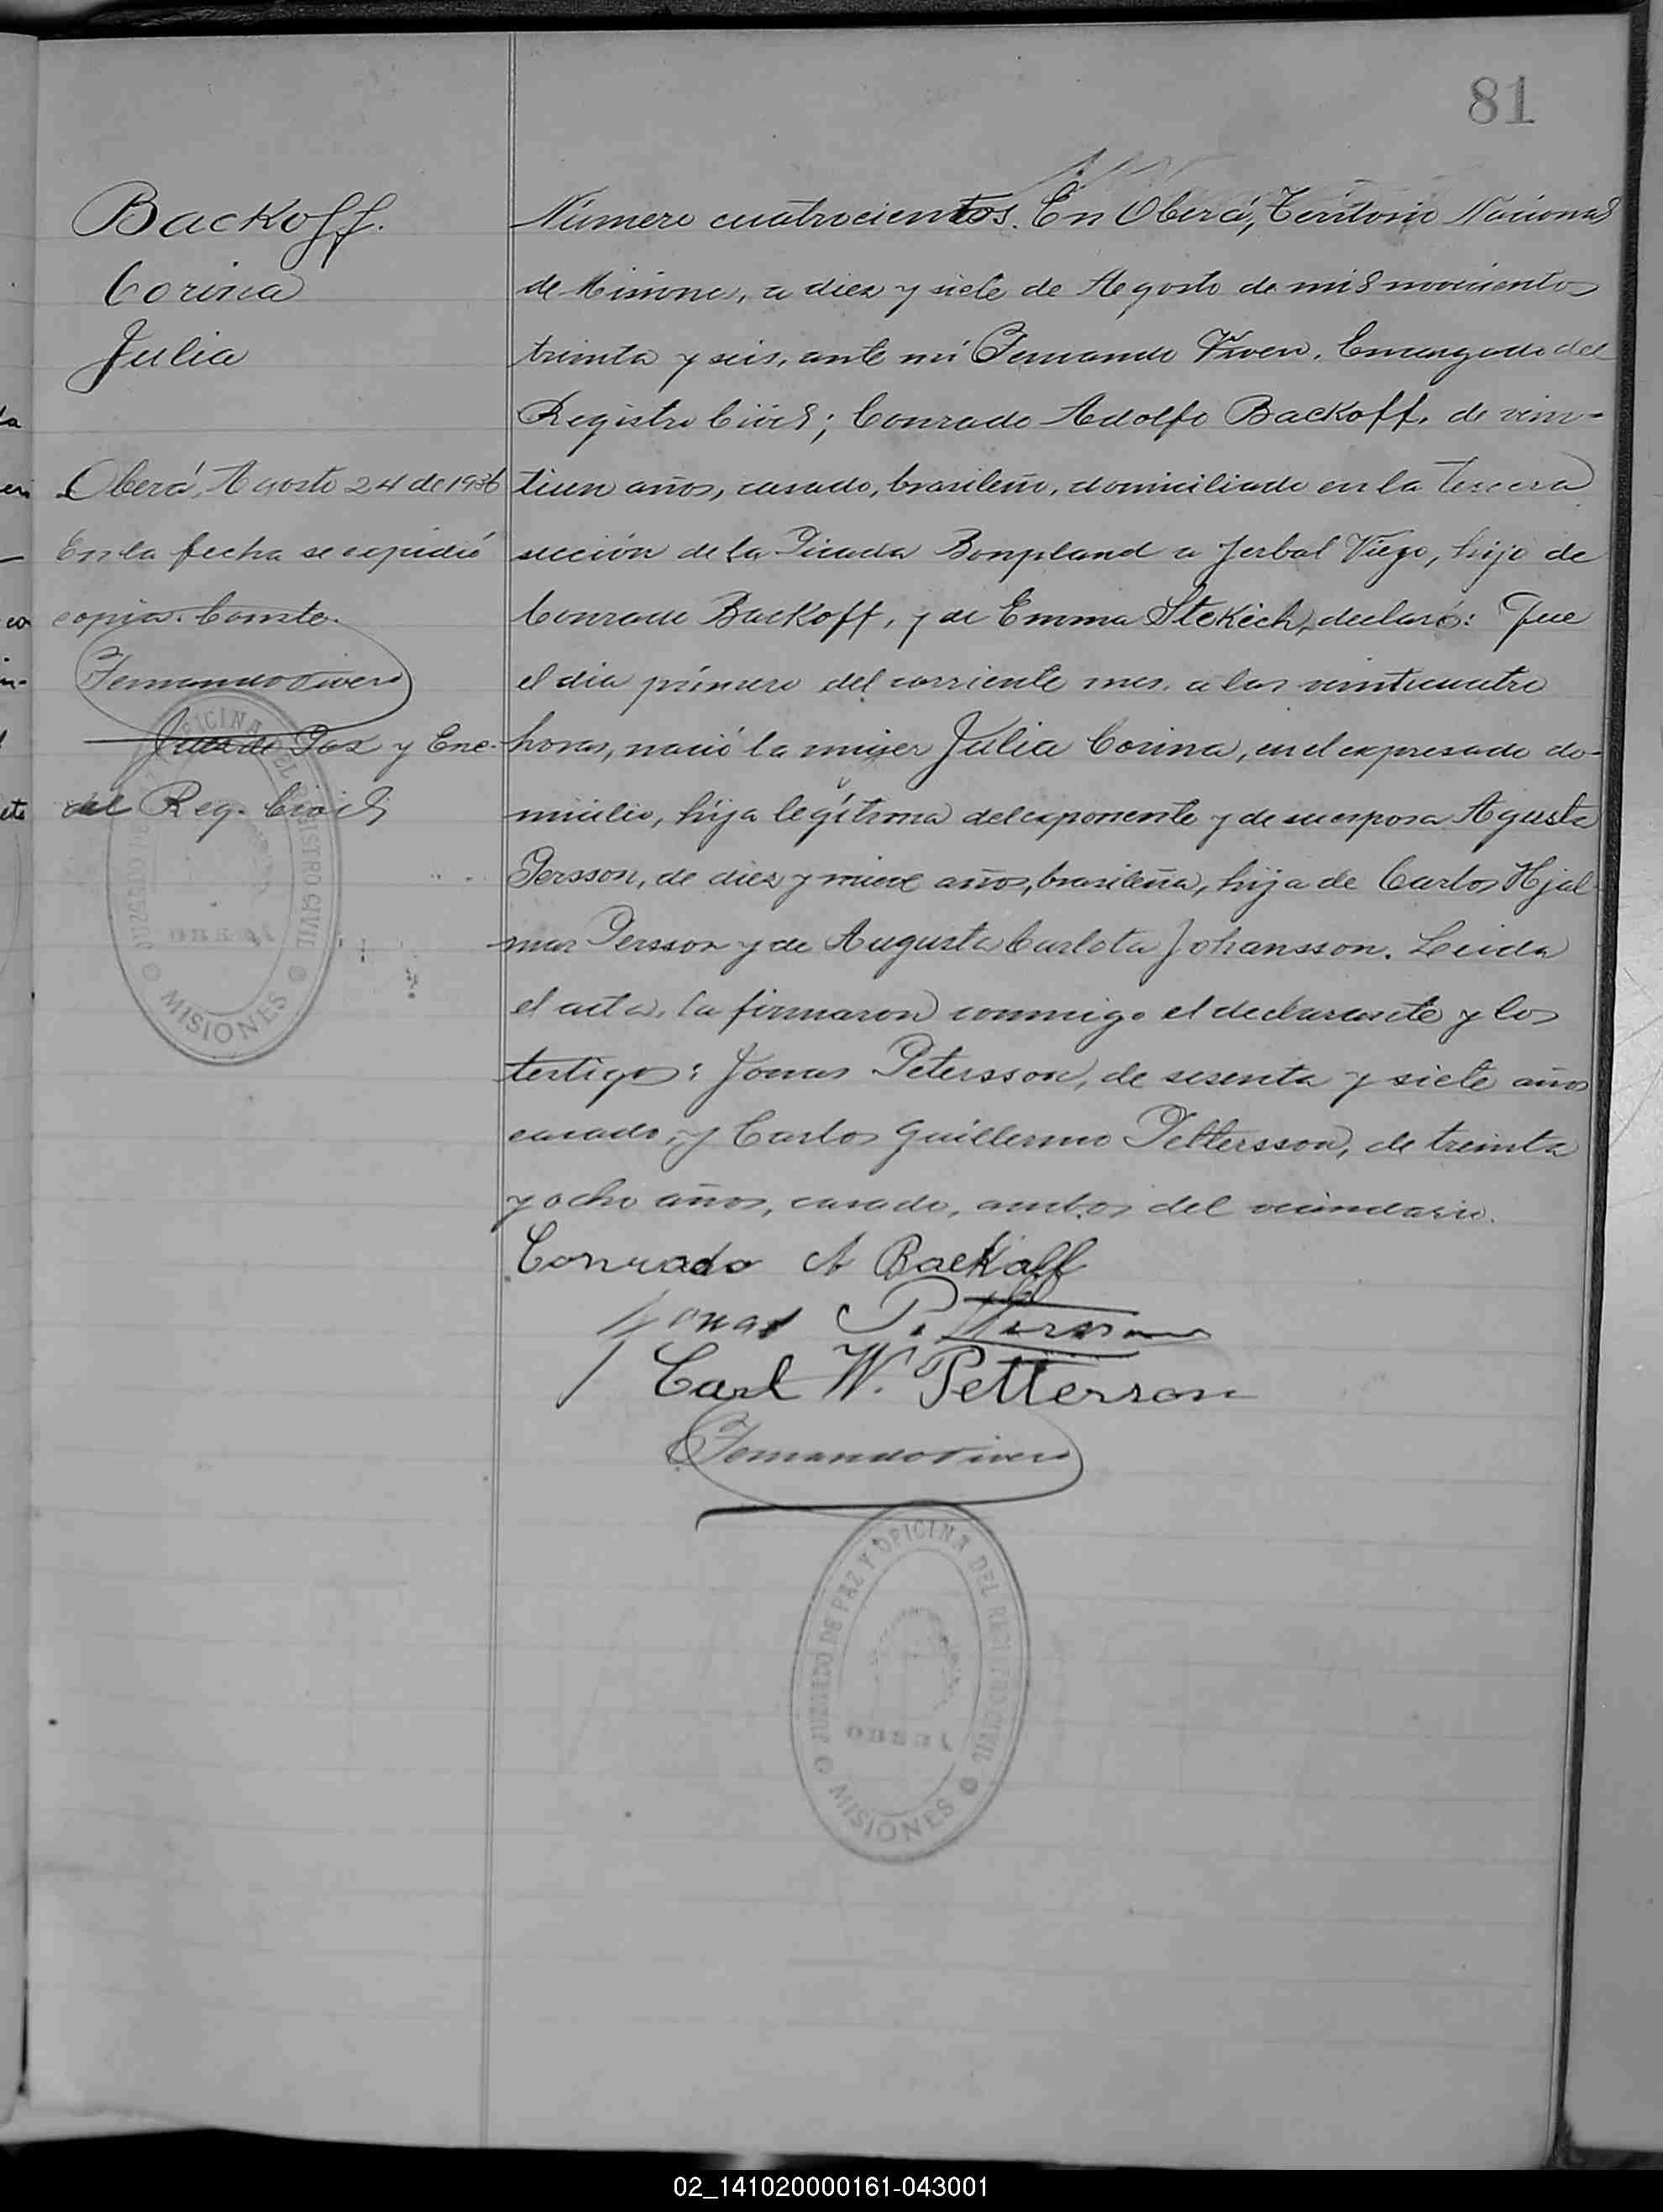 81
Backoff.
Corina
Julia
Oberá, Agosto 24 de 1936
En la fecha se expidió
copia. Conste.
Fernando Vivero
Juez de Paz y Enc.
del Reg. Civil
OFICINA DEL REGISTRO CIVIL
JUZGADO
OBERÁ
MISIONES
Número cuatrocientos. En Oberá, Territorio Nacional
de Misiones, a diez y siete de Agosto de mil novecientos
treinta y seis, ante mí Fernando Encargado del
Registro Civil; Conrado Adolfo Backoff, de vein-
tiun años, casado, brasileño, domiciliado en la tercera
sección de la Picada Bonpland a Yerbal Viejo, hijo de
Conrado Backoff, y de Emma Stekich, declaró: Que
el dia primero del corriente mes, a las veinticuatro
horas, nació la mujer Julia Corina, en el expresado do-
micilio, hija legítima del exponente y de su esposa Agusta
Persson, de diez y nueve años, brasileña, hija de Carlos Hjal-
mar Persson y de Augusta Carlota Johansson. Leida
el acta, la firmaron conmigo el declarante y los
testigos: Jonas Petersson, de sesenta y siete años
casado, y Carlos Guillermo Pettersson, de treinta
y ocho años, casado, ambos del vecindario.
Conrado A Backoff
Jonas Petterson
Carl W. Petterson
Fernando Vivero
JUZGADO DE PAZ Y OFICINA DEL REGISTRO CIVIL
OBERÁ
MISIONES
02_141020000161-043001